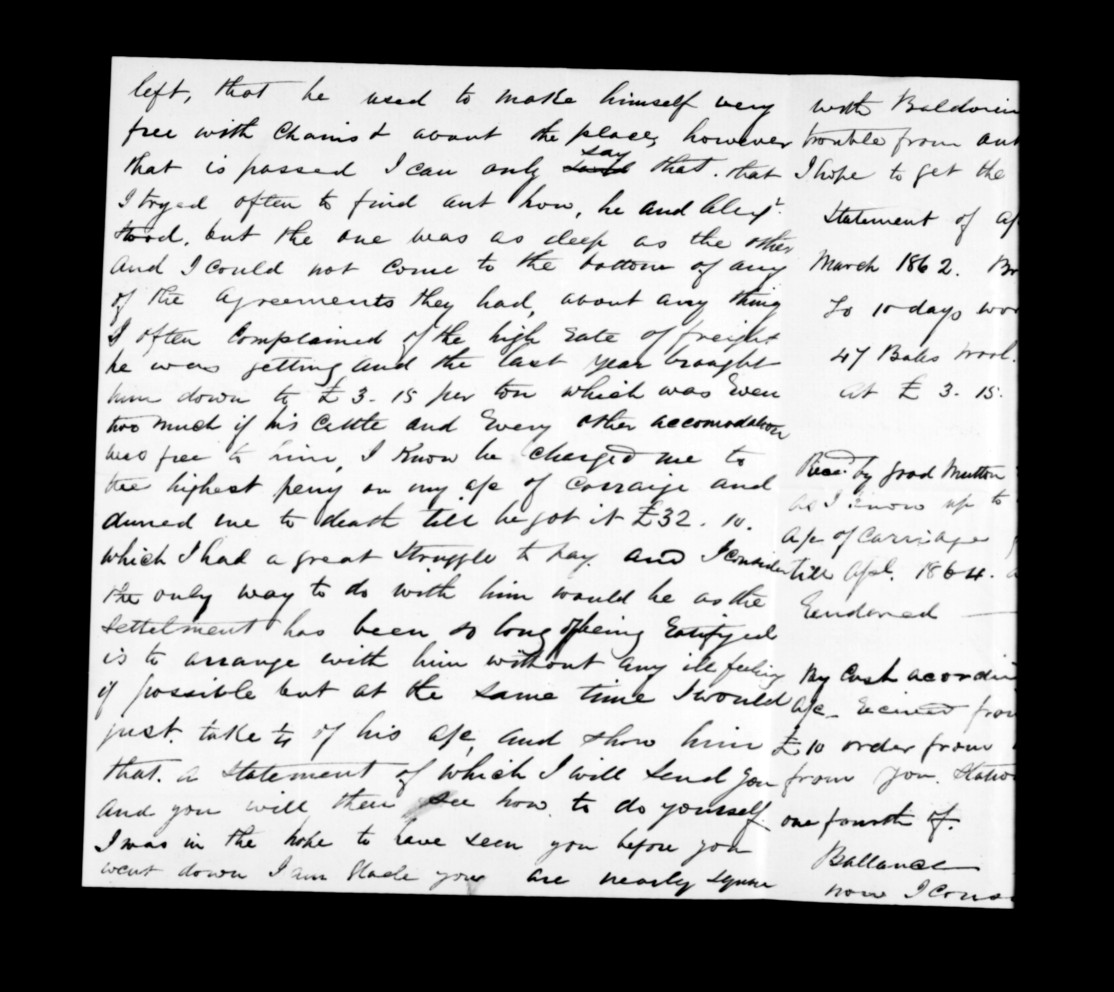 left, that he used to make himself very
free with Chains & about the place, however
that is passed I can only say that. that
I tryed often to find aut how, he and Alexr.
stood, but the one was as deep as the other
and I could not come to the bottom of any
of the agreements they had, about any thing
I often Complained of the high rate of freight
he was getting and the last year braught
him down to £ 3. 15 per ton which was Even
too much if his Cattle and Every other accomodation
was free to him, I know he charged me to
the highest peny on my a/c of Carraige and
duned me to death till he got it £32. 10.
which I had a great Struggle to pay. and I consider
the only way to do with him would be as the
settelment has been so long of being
is to arrange with him without any ill feeling
if possible but at the same time I would
just. take to of his a/c, and show him
that. a statement of which I will send you
and you will then see how. to do yourself.
I was in the hope to have seen you before you
went down I am Glade you are nearly square
with Baldwin
trouble from
I hope to get the
Statement of
March 1862.
To 10 days
47 Bales wool.
at £ 3. 15.
Recd. by good Mutton
as I know up to
a/c of Carriage
till Apl. 1864.
By Cash
a/c
£10 order from
from you.
one fourth of.
Ballance
now I